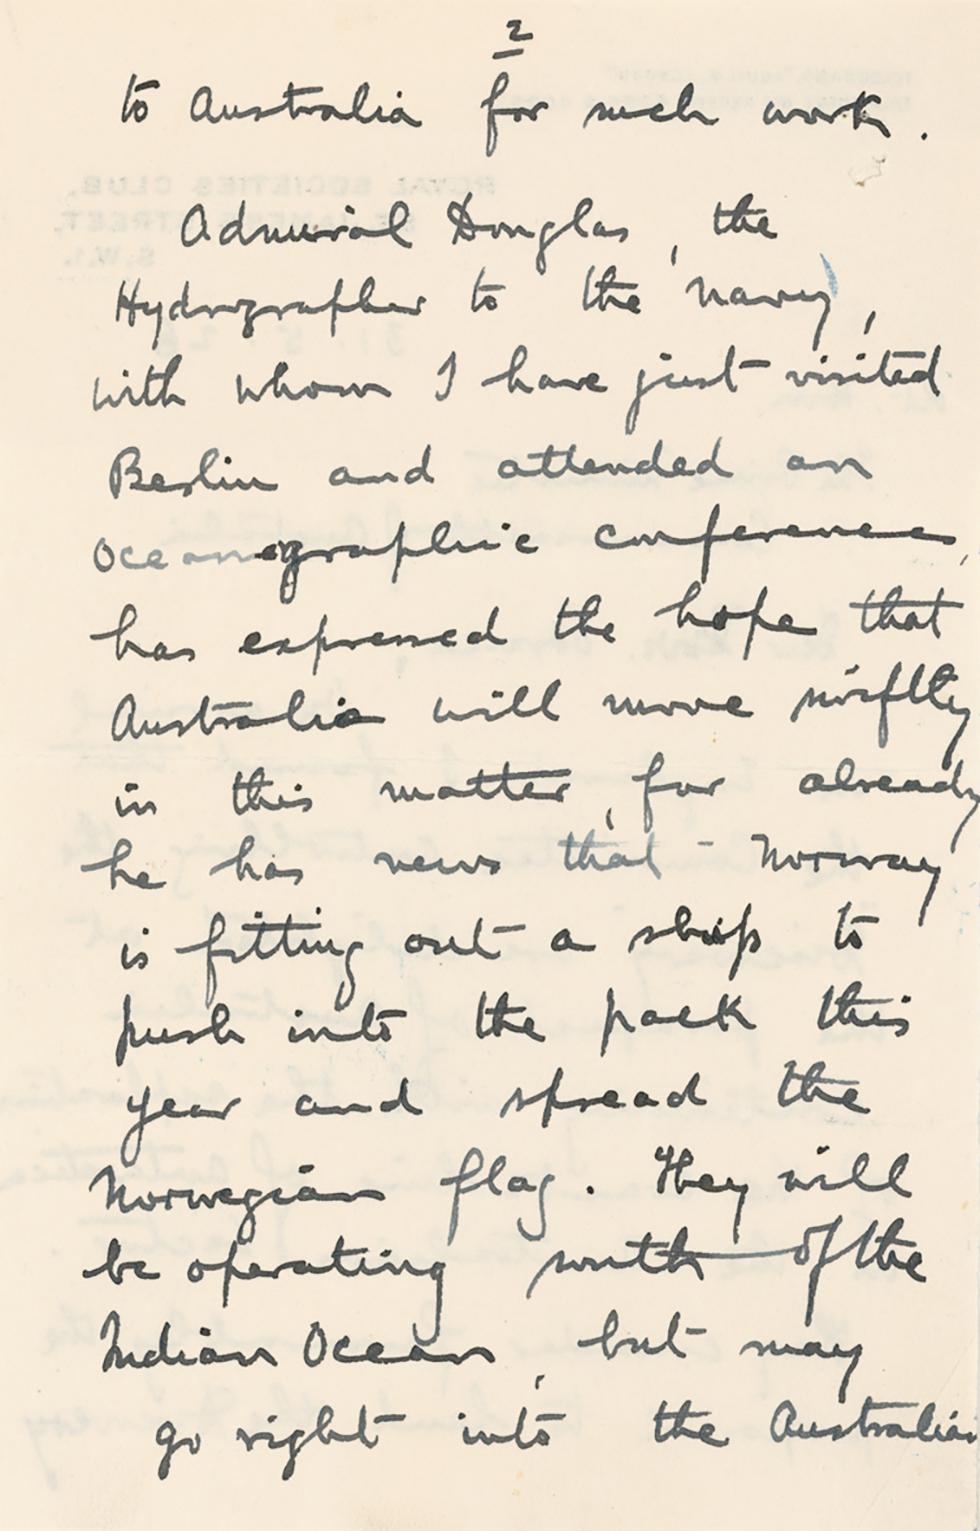 2
to Australia for such work.
Admiral Douglas, the
Hydrographer to the Navy,
with whom I have just visited
Berlin and attended an
Oceanographic conference,
has expressed the hope that
Australia will move swiftly
in this matter, for already
he has news that Norway
is fitting out a ship to
push into the pack this
year and spread the
Norwegian flag. They will
be operating south of the
Indian Ocean, but may
go right into the Australian
ROYAL SOCIETIES CLUB,
ST. JAMES'S STREET,
S.W.1.